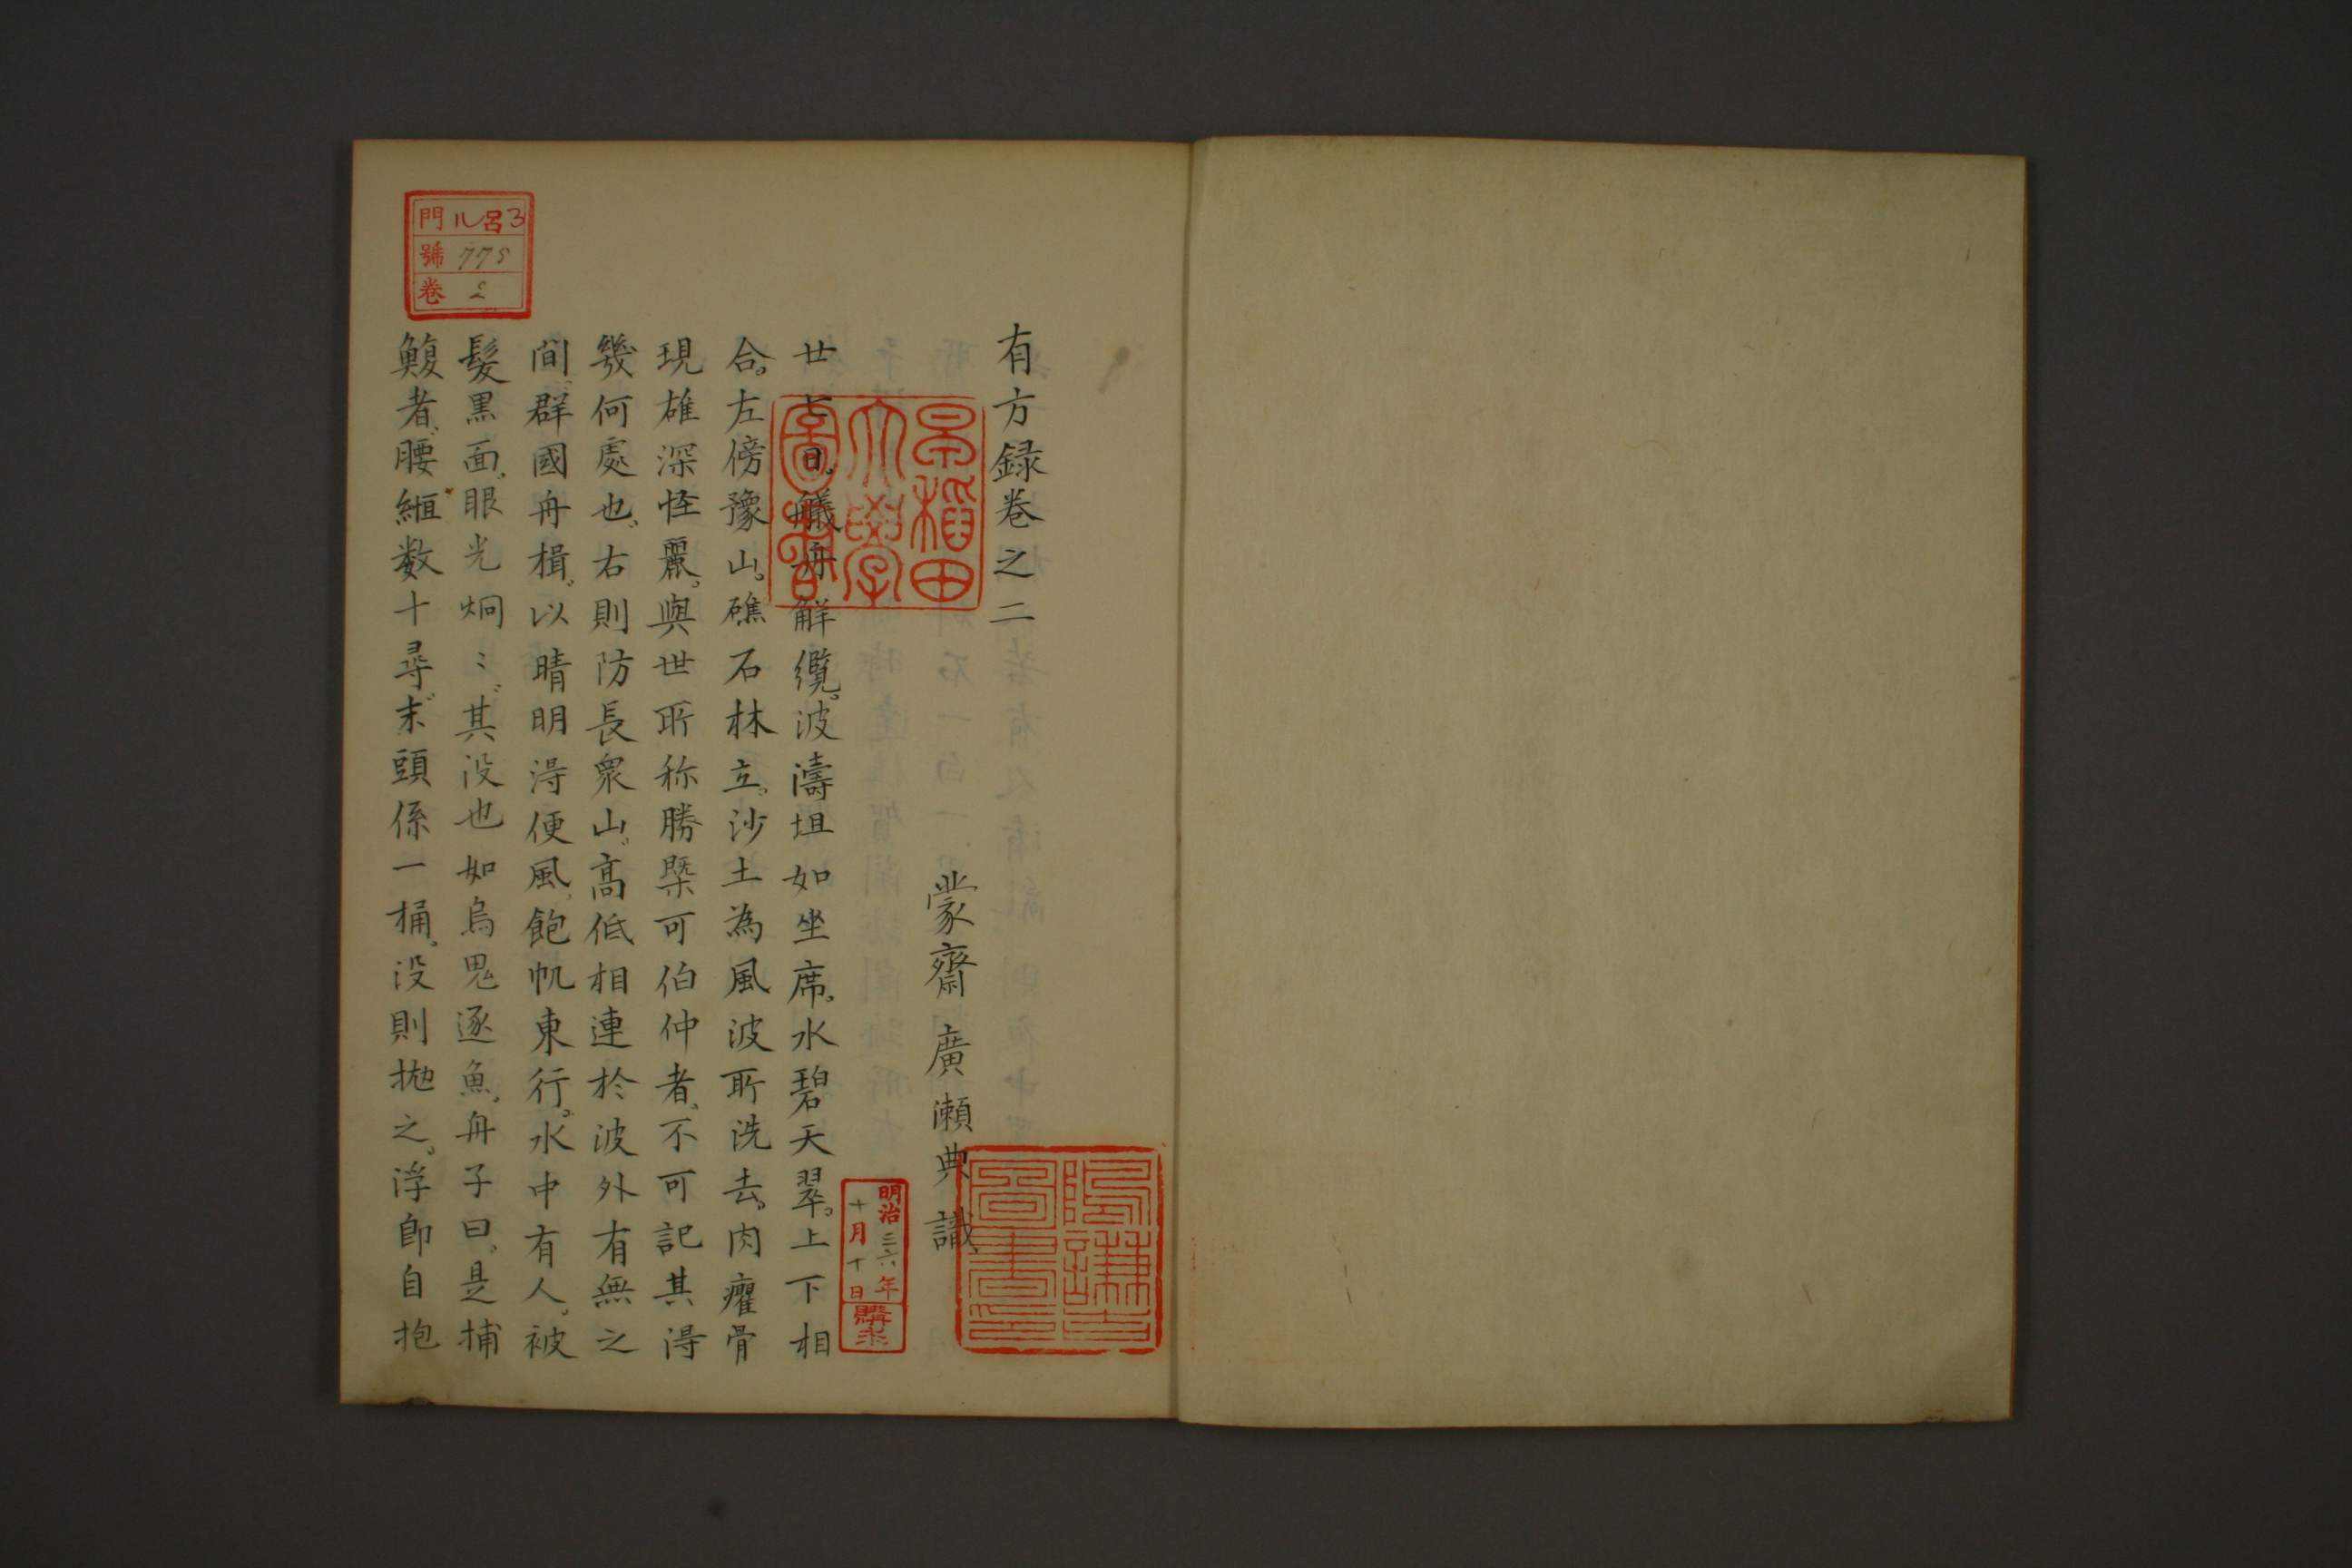 有方録巻之二
蒙齋 廣瀬典識
廿七日。艤舟解纜。波濤坦如坐席。水碧天翠。上下相
合。左傍豫山。礁石林立。沙土為風波所洗去。肉癯骨
現雄深怪麗。與世所称勝槩可伯仲者、不可記其得
幾何處也、右則防長衆山。高低相連於波外有無之
間。群國舟楫。以晴明得便風。飽帆東行。水中有人。被
髪黒面。眼光炯〻。其没也如烏鬼逐魚。舟子曰。是捕
鰒者。腰縆数十尋。末頭係一桶。没則抛之。浮即自抱
早稲田
大學
圖書
明治三六年
十月十日
購求
門 ル呂3
號 775
巻 2